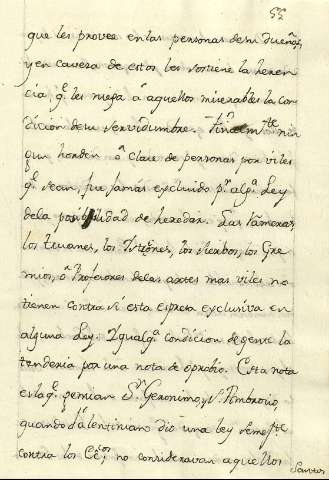 55
que les provee en las personas de su dueños,
y en cavera de estos les sostiene la heren
cia, q.e les niega â aquellos miserables la Con
dicion de su servidumbre. Finalm.te nin
gun horden ô Clase de personas por viles
q.e sean, fue jamas excluido p.r alg.a Ley
de la posibilidad de heredar. Las Rameras,
los truanes, los Istriones, los sierbos, los Gre
mios, ô Profesores de las artes mas viles no
tienen contra sí esta espresa exclusiva en
alguna Ley. Y qualq.a condicion de gente la
tendria por una nota de oprobio. Esta nota
es la q.e gemian S.n Geronimo, y S.n Ambrosio,
quando Valentiniano dio una ley seme.te
contra los Cc.os, no consideravan aquellos
Santos